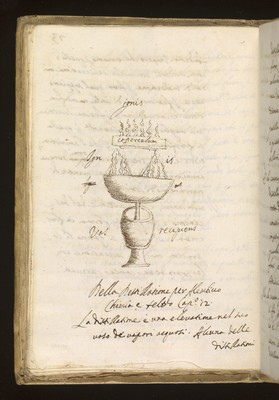 ignis
cooperculum
Ign is
Vas recipiens
Della Distillatione per
e feltro Cap.º 12
La distillatione è una elevatione nel suo
vaso de vapori aquosi. Alcuna delle
distillationi